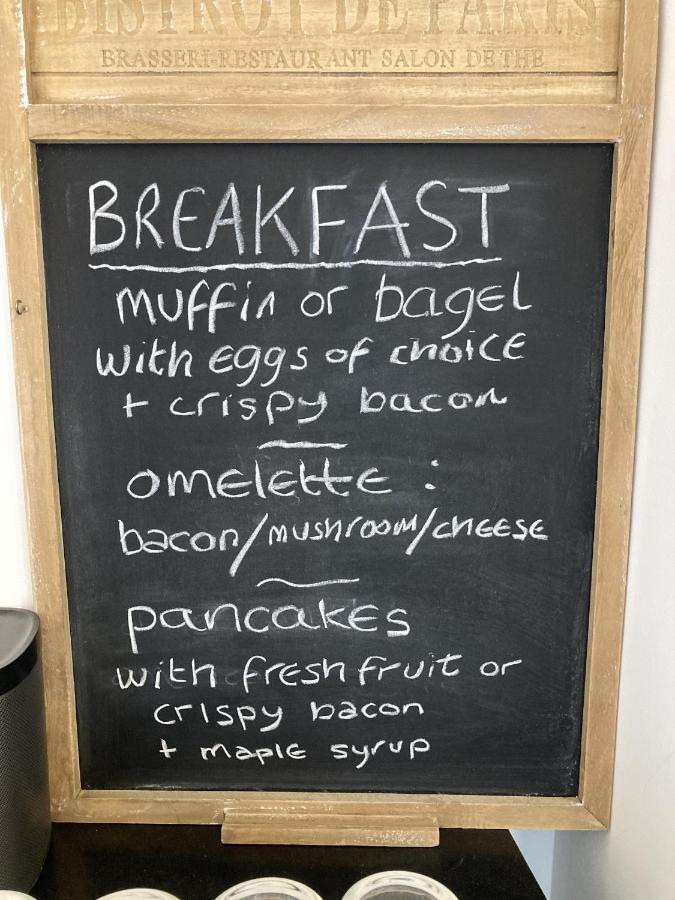 BISTROT DE PARIS
BRASSERI-RESTAURANT SALON DE THE
BREAKFAST
muffin or bagel
with eggs of choice
+ crispy bacon
omelette :
bacon/mushroom/cheese
pancakes
with fresh fruit or
crispy bacon
+ maple syrup